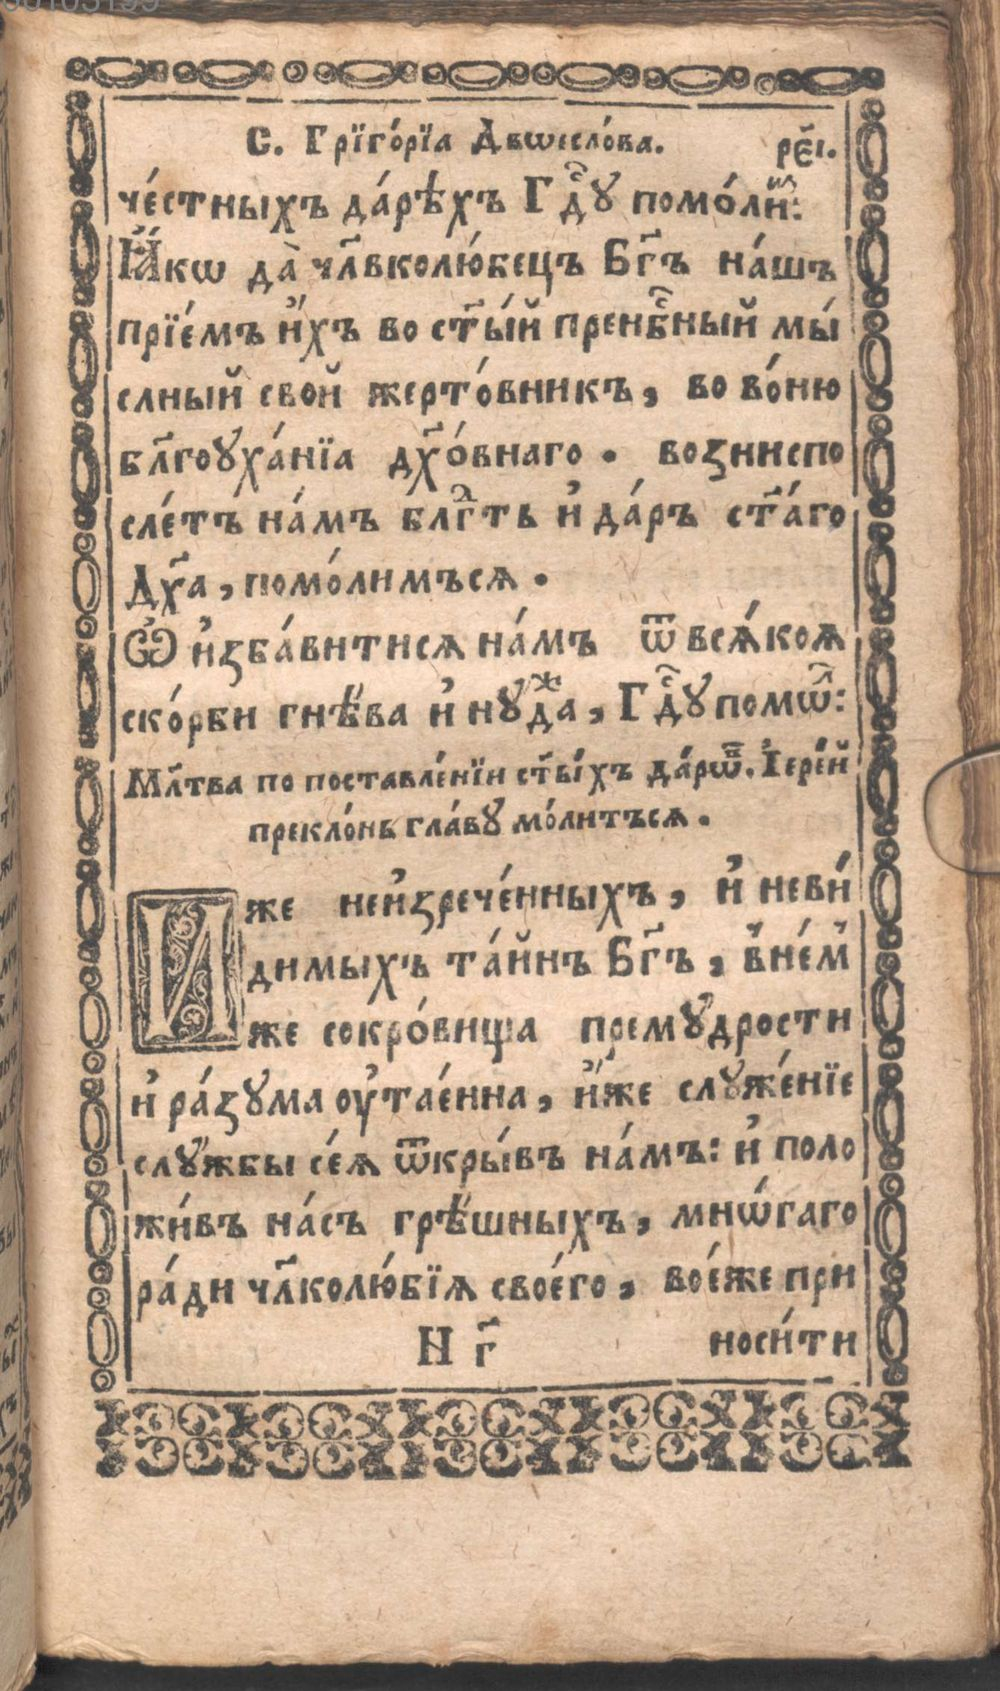 С. Грїго́рїа Двоесло́ва. рє҃і.
че́стныхъ да́рѣхъ Гдⷭ҇ꙋ помо́лиⷨ:
Ꙗ҆́кѡ да̀ чл҃вколю́бецъ Бг҃ъ на́шъ
прїе́мъ и҆́хъ во ст҃ы́й пренбⷭ҇ный мы́
слный свой жерто́вникъ, во во́ню
бл҃гоꙋха́нїа дх҃о́внаго. возниспо
сле́тъ на́мъ блгⷣть и҆ да́ръ ст҃а́го
Дх҃а, помо́лимъсѧ.
Ѽ и҆зба́витисѧ на́мъ ѿ всѧ́коѧ
ско́рби гнѣ́ва и҆ нꙋⷤда, Гдⷭ҇ꙋ помѡⷧ:
Мл҃тва по поставле́нїи ст҃ы́хъ да́рѡⷡ. І҆ере́й
прекло́нь гла́вꙋ мо́литъсѧ.
Иже неи҆зрече́нныхъ, и҆ неви́
димыхъ та́инъ Бг҃ъ, в̾не́м
же сокро́вища премꙋдрости
и҆ ра́зꙋма оу҆тае́нна, и҆́же слꙋже́нїе
слꙋ́жбы се́ѧ ѿкры́въ на́мъ: и҆ поло
жи́въ на́съ грѣ́шныхъ, мнѡ́гаго
ра́ди чл҃колю́бїѧ свое́го, вое́же при
И г҃ носи́ти